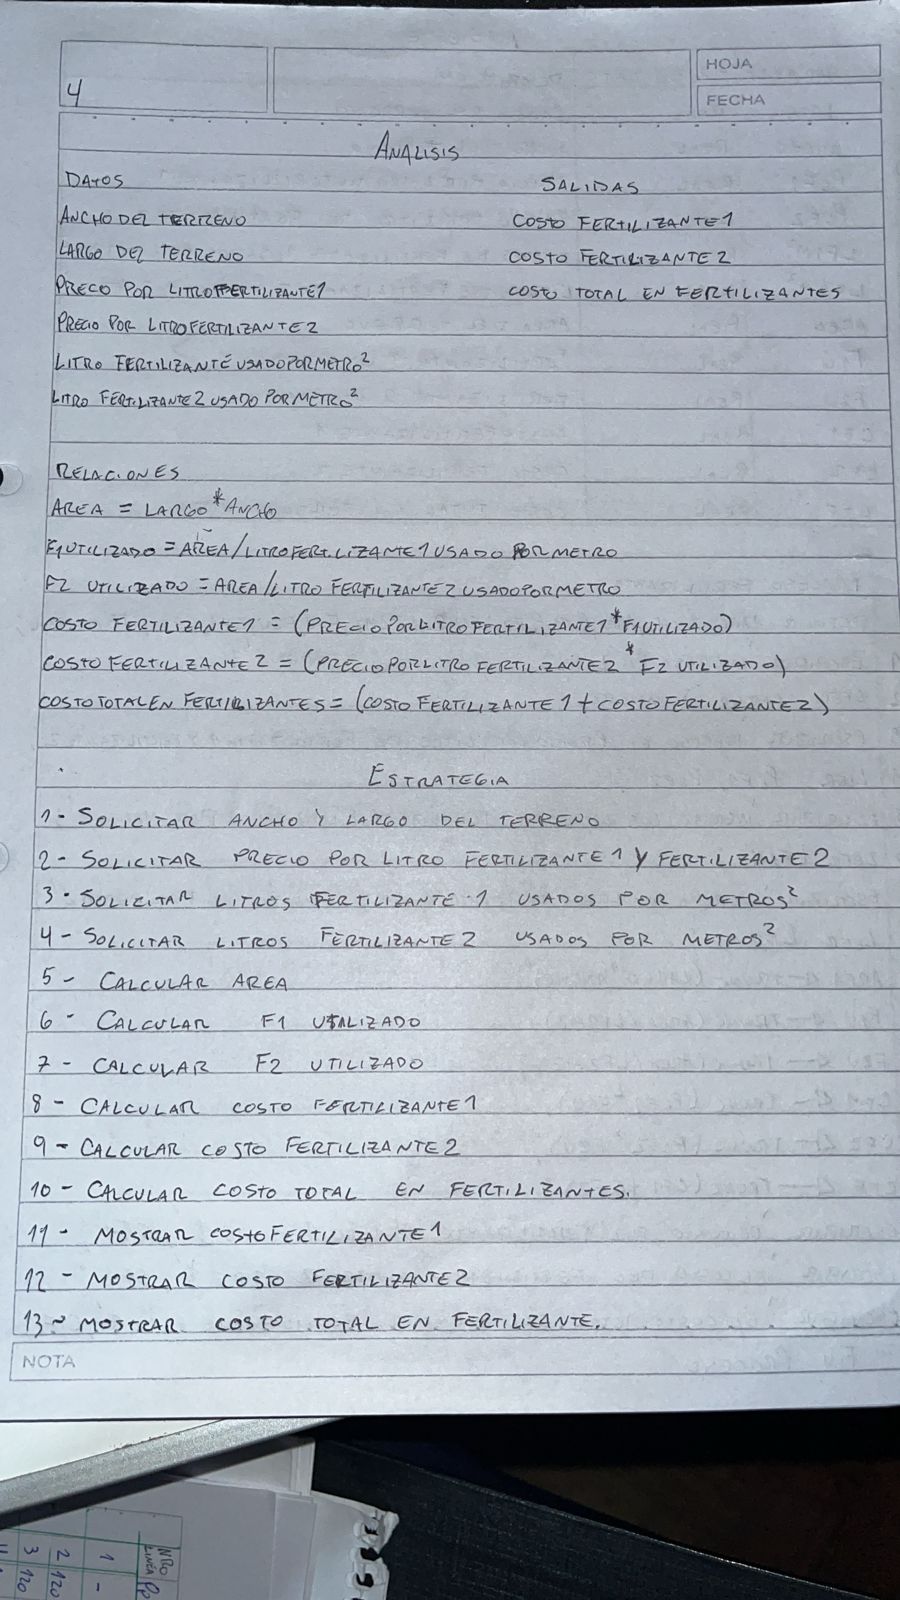 4
HOJA
FECHA
ANALISIS
DATOS
SALIDAS
ANCHO DEL TERRENO
COSTO FERTILIZANTE1
LARGO DEL TERRENO
COSTO FERTILIZANTE 2
PRECO POR LITRO FERTILIZANTE1
COSTO TOTAL EN FERTILIZANTES
PRECIO POR LITRO FERTILIZANTE 2
LITRO FERTILIZANTE USADO POR METRO²
LITRO FERTILIZANTE 2 USADO POR METRO²
RELACIONES
AREA = LARGO * ANCHO
F1 UTILIZADO = AREA / LITRO FERTILIZANTE 1 USADO POR METRO
F2 UTILIZADO = AREA / LITRO FERTILIZANTE 2 USADO POR METRO
COSTO FERTILIZANTE1 = (PRECIO POR LITRO FERTILIZANTE1 * F1 UTILIZADO)
COSTO FERTILIZANTE 2 = (PRECIO POR LITRO FERTILIZANTE 2 * F2 UTILIZADO)
COSTO TOTAL EN FERTILIZANTES = (COSTO FERTILIZANTE 1 + COSTO FERTILIZANTE 2)
ESTRATEGIA
1- SOLICITAR ANCHO Y LARGO DEL TERRENO
2- SOLICITAR PRECIO POR LITRO FERTILIZANTE 1 Y FERTILIZANTE 2
3- SOLICITAR LITROS FERTILIZANTE 1 USADOS POR METROS²
4- SOLICITAR LITROS FERTILIZANTE 2 USADOS POR METROS²
5- CALCULAR AREA
6- CALCULAR F1 UTILIZADO
7- CALCULAR F2 UTILIZADO
8- CALCULAR COSTO FERTILIZANTE 1
9- CALCULAR COSTO FERTILIZANTE 2
10- CALCULAR COSTO TOTAL EN FERTILIZANTES.
11- MOSTRAR COSTO FERTILIZANTE 1
12- MOSTRAR COSTO FERTILIZANTE 2
13- MOSTRAR COSTO TOTAL EN FERTILIZANTE.
NOTA
NRO
LINEA
1 -
2 120
3 120